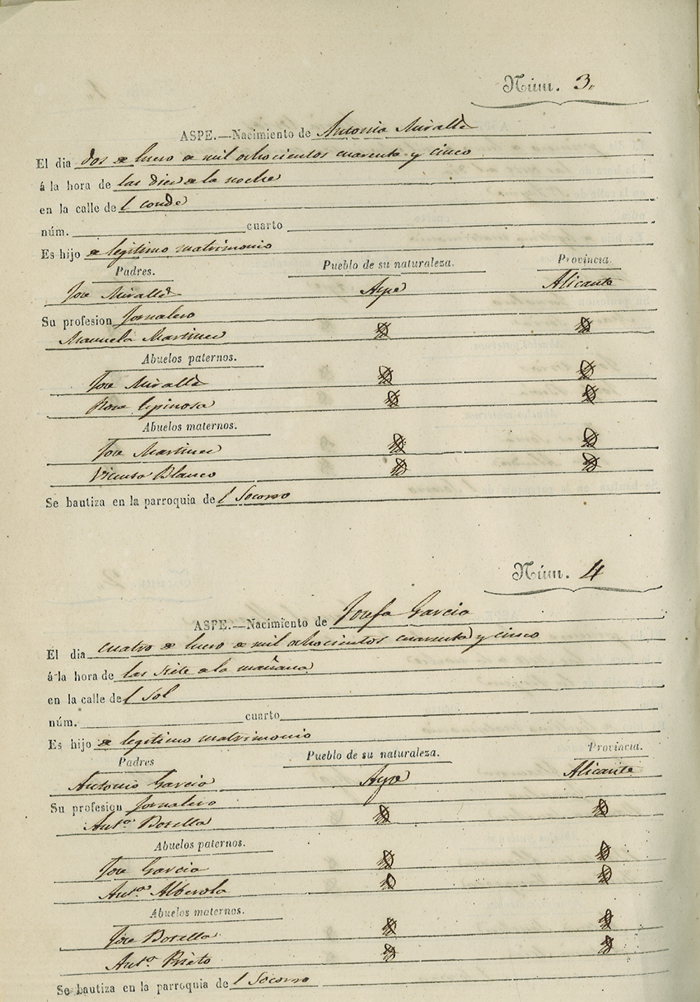 Núm. 3.
ASPE.—Nacimiento de Antonia Miralle
El dia dos de Enero de mil ochocientos cuarenta y cinco
á la hora de las diez de la noche
en la calle del conde
núm. cuarto
Es hijo de legitimo matrimonio
Padres. Pueblo de su naturaleza. Provincia.
Jose Miralle Aspe Alicante
Su profesion Jornalero
Manuela Martinez
Abuelos paternos.
Jose Miralle
Rosa Espinosa
Abuelos maternos.
Jose Martinez
Vicenta Blanco
Se bautiza en la parroquia del Socorro
Núm. 4
ASPE.—Nacimiento de Josefa Garcia
El dia cuatro de Enero de mil ochocientos cuarenta y cinco
á la hora de las siete de la mañana
en la calle del Sol
núm. cuarto
Es hijo de legitimo matrimonio
Padres Pueblo de su naturaleza. Provincia.
Antonio Garcia Aspe Alicante
Su profesion Jornalero
Ant.ª Botella
Abuelos paternos.
Jose Garcia
Ant.ª Alberola
Abuelos maternos.
Jose Botella
Ant.ª Prieto
Se bautiza en la parroquia del Socorro